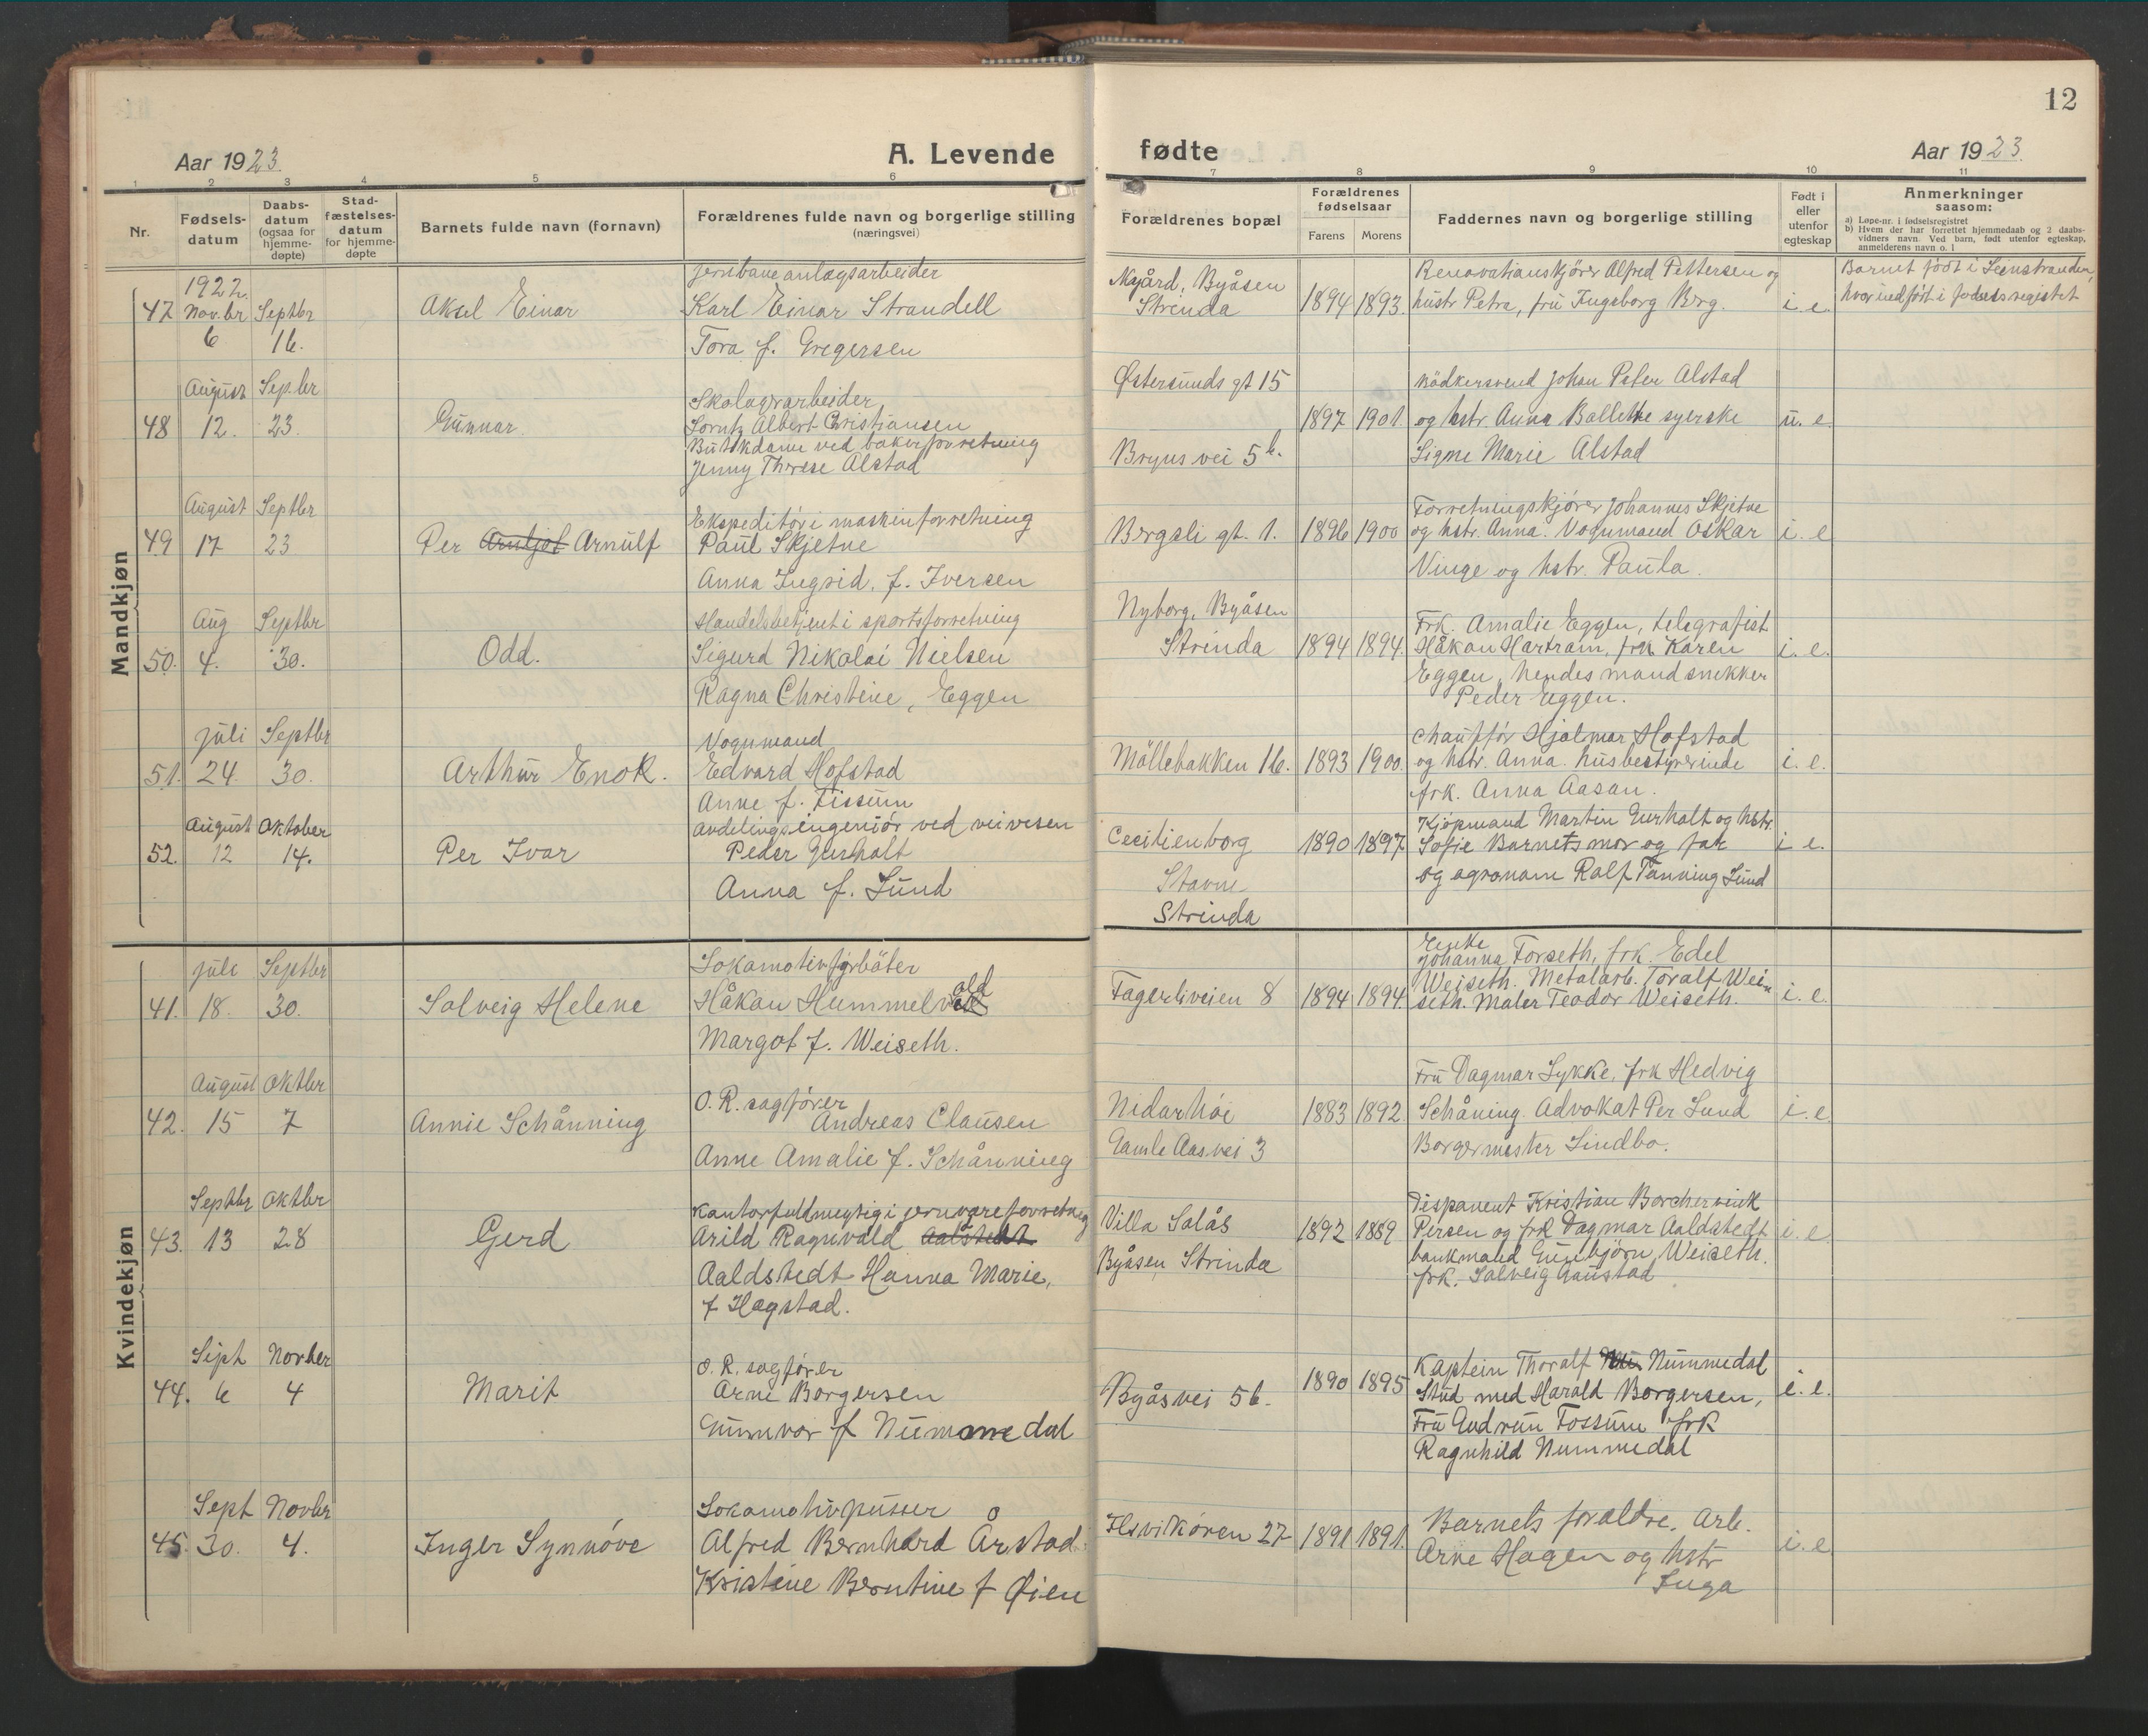 12
Aar 1923.
A. Levende fødte
Aar 1923.
1 2 3 4 5 6 7 8 9 10 11
Nr.
Fødselsdatum
Daabsdatum (ogsaa for hjemmedøpte)
Stadfæstelsesdatum for hjemmedøpte
Barnets fulde navn (fornavn)
Forældrenes fulde navn og borgerlige stilling
(næringsvei)
Forældrenes bopæl
Forældrenes fødselsaar
Farens Morens
Faddernes navn og borgerlige stilling
Født i eller utenfor egteskap
Anmerkninger
saasom:
a) Løpe-nr. i fødselsregistret
b) Hvem der har forrettet hjemmedaab og 2 daabsvidners navn. Ved barn, født utenfor egteskap, anmelderens navn o. l
Mandkjøn
47
1922.
Novbr 6
Septbr 16.
Aksel Einar
Jernbaneanlægsarbeider
Karl Einar Strandell
Tora f. Gregersen
Nygård, Byåsen
Strinda
1894 1893.
Renovationskjører Alfred Pettersen og
hustr Petra, fru Ingeborg Berg.
i. e.
Barnet født i Leinstranden,
hvor indført i fødselsregistret
48
August 12.
Sepbr 23.
Gunnar
Skolagerarbeider
Lorntz Albert Christiansen
Butikdame ved bakerforretning
Jenny Therese Alstad
Østersunds gt 15
Bryns vei 5b.
1897 1901.
Bödkersvend Johan Peter Alstad
og hstr. Anna Ballette syerske
Signe Marie Alstad
u. e.
49
August 17
Septbr 23
Per Arntjot Arnulf
Ekspeditör i maskinforretning
Paul Skjetne
Anna Ingrid. f. Iversen
Bergsli gt. 1.
1896 1900
Forretningskjörer Johannes Skjetne
og hstr. Anna. Vognmand Oskar
Vinge og hstr. Paula.
i. e
50.
Aug 4.
Septbr 30.
Odd.
Handelsbetjent i sportsforretning
Sigurd Nikolai Nielsen
Ragna Christine, Eggen
Nyborg, Byåsen
Strinda
1894 1894.
Frk. Amalie Eggen, telegrafist
Håkon Hartram, frk Karen
Eggen, hendes mand snekker
Peder Eggen.
i. e.
51.
Juli 24.
Septbr 30.
Arthur Enok.
Vognmand
Edvard Hofstad
Anne f. Tissum
Möllebakken 16.
1893 1900.
Chaufför Hjalmar Hofstad
og hstr. Anna. husbestyrerinde
frk. Anna Aasan.
i. e.
52.
August 12
Oktober 14.
Per Ivar
avdelingsingeniör ved veivesen
Peder Gjerholt
Anna f. Lund
Cecilienborg
Stavne
Strinda
1890 1897
Kjöpmand Martin Gjerholt og hstr.
Sofie Barnets mor og far
og agronom Ralf Tanning Lund
i e.
Kvindekjøn
41.
Juli 18.
Septbr 30.
Solveig Helene
Lokomotivfyrböter
Håkon Hummelvold
Margot f. Weiseth.
Fagerliveien 8
1894 1894.
Enke
Johanna Forseth, frk. Edel
Weiseth. Metalarb. Toralf Wei
seth. Maler Teodor Weiseth.
i. e.
42.
August 15
Oktbr 7
Annie Schånning
O. R. sagförer
Andreas Clausen
Anne Amalie f. Schånning
Nidarhöi
Gamle Aasvei 3
1883 1892.
Fru Dagmar Lykke, frk Hedvig
Schåning. Advokat Per Lund
Borgermester Lindbo.
i. e
43.
Septbr 13
Oktbr 28
Gerd
Kontorfuldmegtig i jernvareforretning
Arild Ragnvald Aalstedt
Aaldstedt Hanna Marie,
f Hagstad.
Villa Solås
Byåsen Strinda
1892 1889
Disponent Kristian Borchervink
Persen og frk Dagmar Aaldstedt
bankmand Gunbjörn Weiseth.
frk. Solveig Gaustad
i. e.
44.
Sept 6
Novber 4
Marit
O. R. sagförer
Arne Borgersen
Gunnvor f Nummedal
Byåsvei 5b.
1890 1895
Kaptein Thoralf Nummedal
Stud med Harald Borgersen,
Fru Gudrun Fossum frk
Ragnhild Nummedal
i. e.
45.
Sept 30.
Novbr 4.
Inger Synnöve
Lokomotivpusser
Alfred Bernhard Årstad
Kristine Berntine f Øien
Ilsvikören 27
1891 1891.
Barnets foraldre. Arb.
Arne Hagen og hstr
Inga
i. e